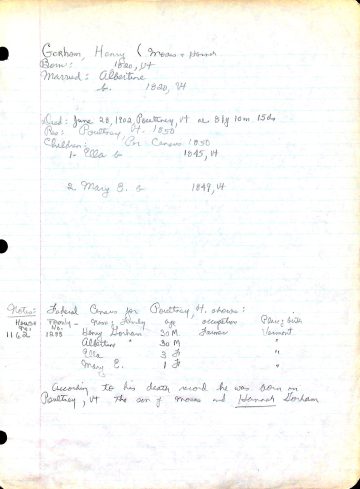 Gorham, Henry ( Moses + Hannah
Born: 1820, Vt
Married: Albertine
b. 1820, Vt
Died: June 28, 1902, Poultney, Vt ae 81y 10m 15ds
Res: Poultney, Vt. 1850
Children: Per Census 1850
1- Ella b 1845, Vt
2. Mary E. b 1849, Vt
Notes: Federal Census for Poultney, Vt. shows:
House No. Family No. Name Family age occupation Place birth
1162 1298 Henry Gorham 30 M Farmer Vermont
Albertine " 30 "
Ella 3 F "
Mary E. 1 F "
According to his death record he was born in
Poultney, Vt the son of Moses and Hannah Gorham